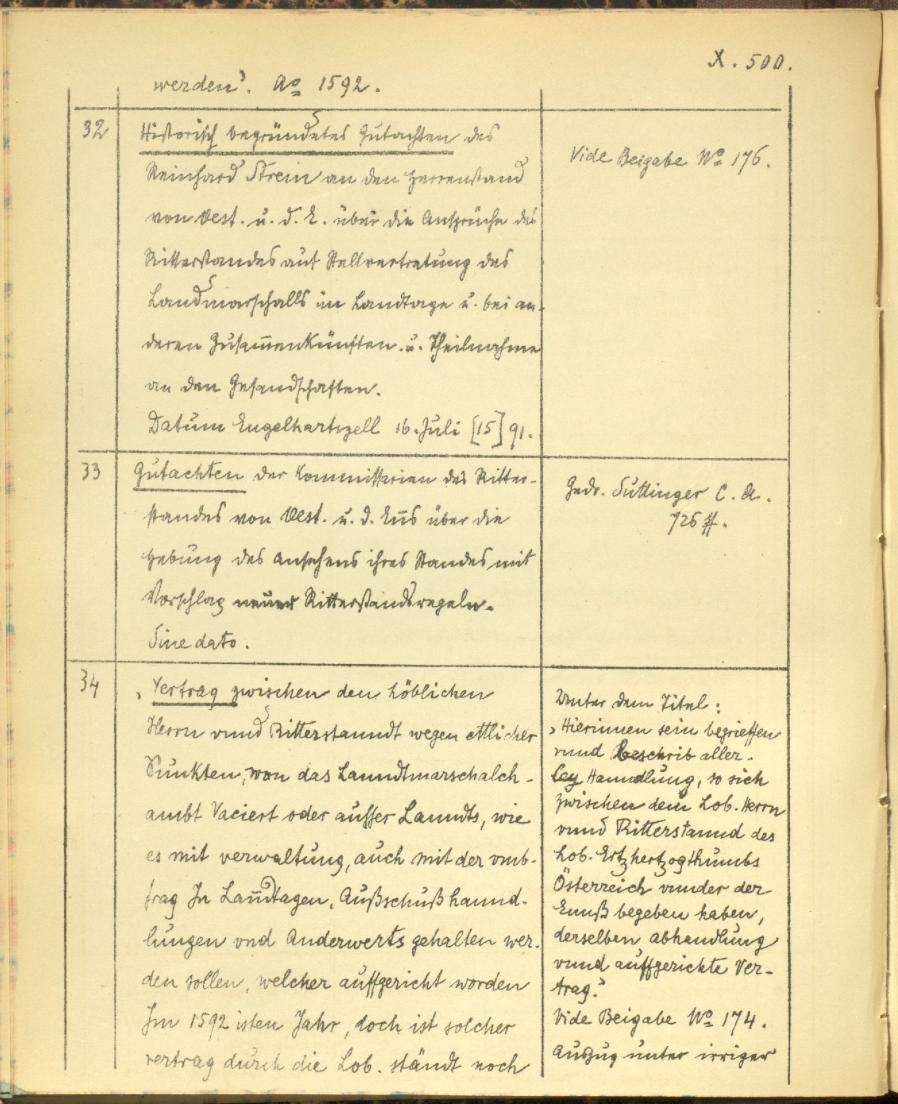 X. 500.
werden". Ao 1592.
32
Historisch begründetes Gutachten des
Reinhard Strein an den Herrenstand
von Oest. u. d. E. über die Ansprüche des
Ritterstandes auf Stellvertretung des
Landmarschalls im Landtage u. bei an-
deren Zusam̅enkünften u. Theilnahme
an den Gesandschaften.
Datum Engelhartszell 16. Juli [15]91.
Vide Beigabe No 176.
33
Gutachten der Kommissarien des Ritter-
standes von Oest. u. d. Ens über die
Hebung des Ansehens ihres Standes mit
Vorschlag neuer Ritterstandsregeln.
Sine dato.
Gedr. Suttinger C. A.
725 ff.
34
„Vertrag zwischen den löblichen
Herrn vnnd Ritterstanndt wegen ettlicher
Punkten, wan das Lanndtmarschalch-
ambt Vaciert oder ausser Lanndts, wie
es mit verwaltung, auch mit der vmb-
frag In Lan̅dtagen, Außschuß hannd-
lungen vnd Anderwerts gehalten wer-
den sollen, welcher auffgericht worden
Im 1592 isten Jahr, doch ist solcher
vertrag durch die Lob. ständt noch
Unter dem Titel:
„Hierinnen sein begrieffen
vnnd beschrib aller-
ley Hanndlung, so sich
zwischen dem Lob. Herrn
vnnd Ritterstannd des
Lob. Ertzhertzogthumbs
Österreich vnnder der
Ennß begeben haben,
derselben abhandlung
vnnd auffgerichte Ver-
trag."
Vide Beigabe No 174.
Auszug unter irriger